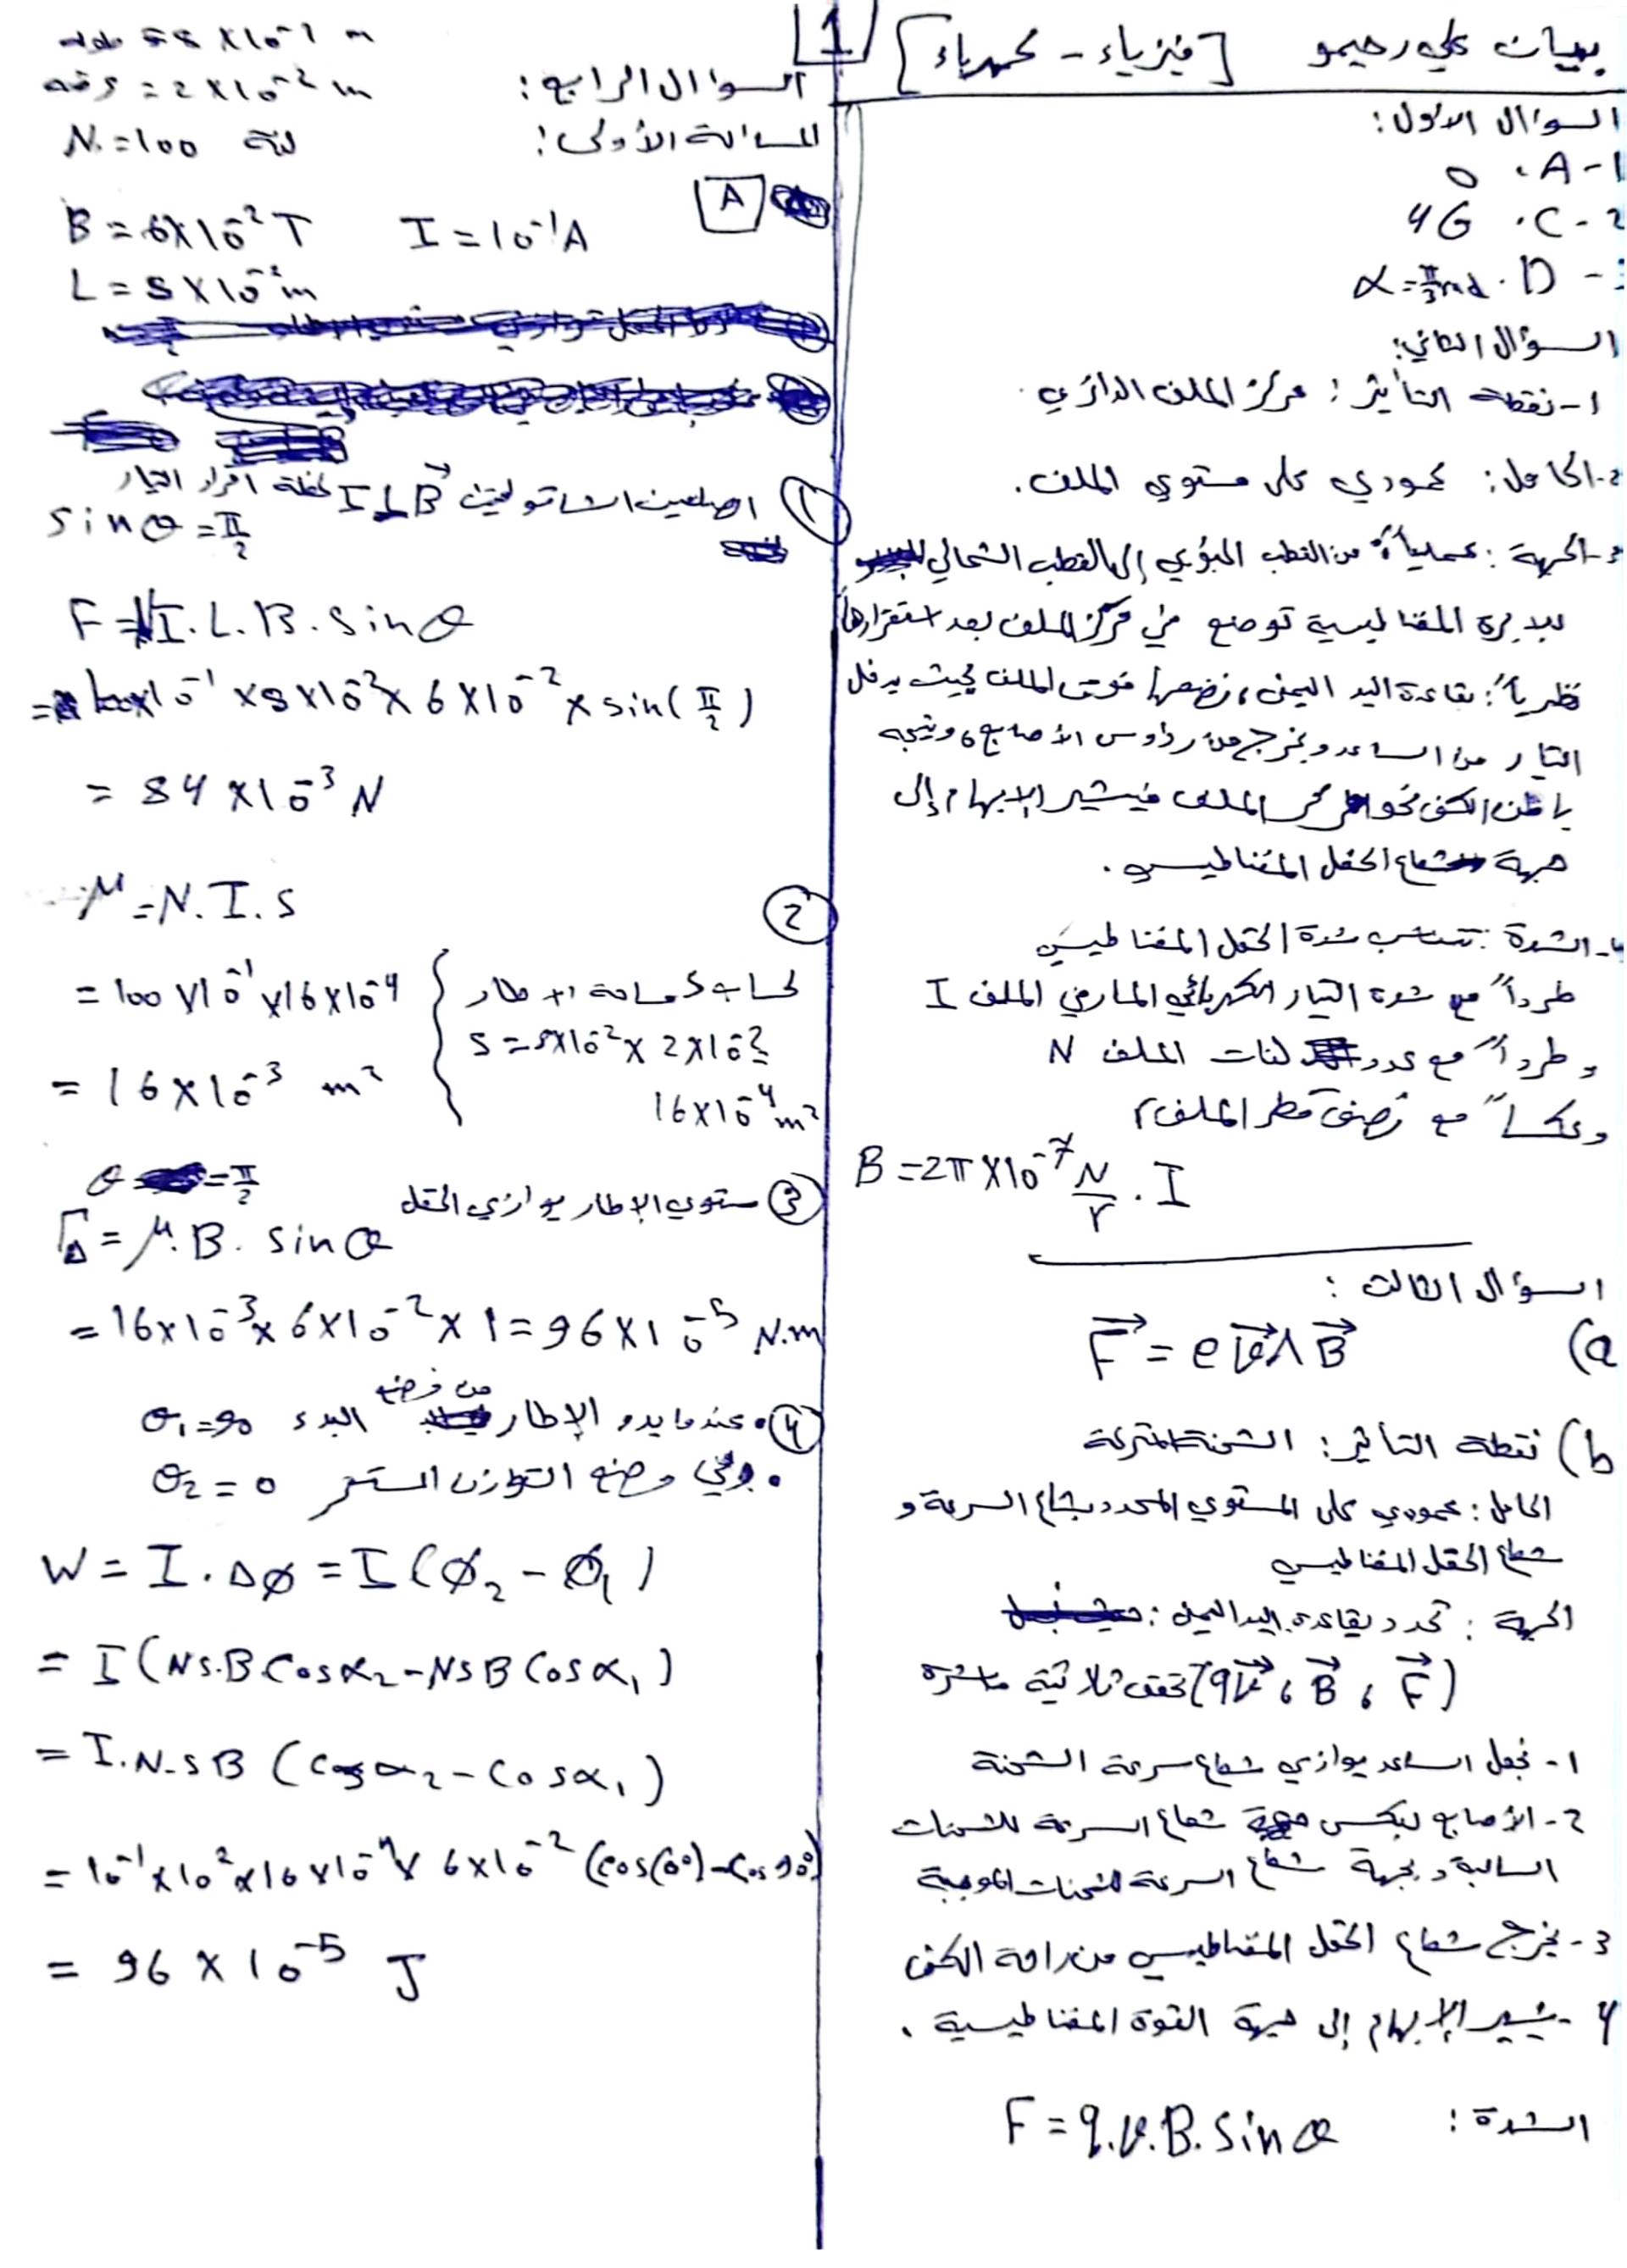 بيان علي رحيمو [فيزياء - كهرباء] 1
السؤال الأول:
1-A. 0
2-C. 4G
D. α = π/3 rad
السؤال الثاني:
1- نقطة التأثير: مركز الملف الدائري.
2- الحامل: عمودي على مستوي الملف.
3- الجهة: عملياً: من القطب الجنوبي إلى القطب الشمالي
لإبرة المغناطيسية توضع في مركز الملف بعد استقرارها
نظرياً: بقاعدة اليد اليمنى، نضعها فوق الملف بحيث يدخل
التيار من الساعد ويخرج من رؤوس الأصابع، ونتجه
باطن الكف نحو مركز الملف فيشير الإبهام إلى
جهة شعاع الحقل المغناطيسي.
4- الشدة: تتناسب شدة الحقل المغناطيسي
طرداً مع شدة التيار الكهربائي المار في الملف I
وطرداً مع عدد لفات الملف N
وعكساً مع نصف قطر الملف r
B = 2π × 10⁻⁷ N/r . I
السؤال الثالث:
a) F⃗ = e v⃗ Λ B⃗
b) نقطة التأثير: الشحنة المتحركة
الحامل: عمودي على المستوي المحدد بشعاع السرعة و
شعاع الحقل المغناطيسي
الجهة: تحدد بقاعدة اليد اليمنى:
(qv⃗ ، B⃗ ، F⃗) تحقق ثلاثية مباشرة
1- نجعل الساعد يوازي شعاع سرعة الشحنة
2- الأصابع بعكس جهة شعاع السرعة للشحنات
السالبة وبجهة شعاع السرعة للشحنات الموجبة
3- يخرج شعاع الحقل المغناطيسي من راحة الكف
4- يشير الإبهام إلى جهة القوة المغناطيسية.
الشدة: F = q.v.B.sinθ
السؤال الرابع: طوله = 8 × 10⁻² m
عرضه = 2 × 10⁻² m
المسألة الأولى: N = 100 لفة
A
B = 6 × 10⁻² T I = 10⁻¹ A
L = 8 × 10⁻² m
1 الضلعين الشاقوليين I ⊥ B⃗ لحظة إمرار التيار
sinθ = π/2
F = N I.L.B.sinθ
= 100 × 10⁻¹ × 8 × 10⁻² × 6 × 10⁻² × sin(π/2)
= 84 × 10⁻³ N
2 M = N.I.s
= 100 × 10⁻¹ × 16 × 10⁻⁴
لحساب s مساحة الإطار
s = 8 × 10⁻² × 2 × 10⁻²
16 × 10⁻⁴ m²
= 16 × 10⁻³ m²
3 مستوي الإطار يوازي الحقل θ = π/2
Γ_Δ = M.B.sinθ
= 16 × 10⁻³ × 6 × 10⁻² × 1 = 96 × 10⁻⁵ N.m
4 • عندما يدور الإطار من وضع البدء θ₁ = 90
• وفي وضع التوازن المستقر θ₂ = 0
W = I.Δϕ = I(ϕ₂ - ϕ₁)
= I(Ns.B.Cosα₂ - NsBCosα₁)
= I.N.sB (Cosα₂ - Cosα₁)
= 10⁻¹ × 10² × 16 × 10⁻⁴ × 6 × 10⁻² (cos(0°) - Cos 90°)
= 96 × 10⁻⁵ J